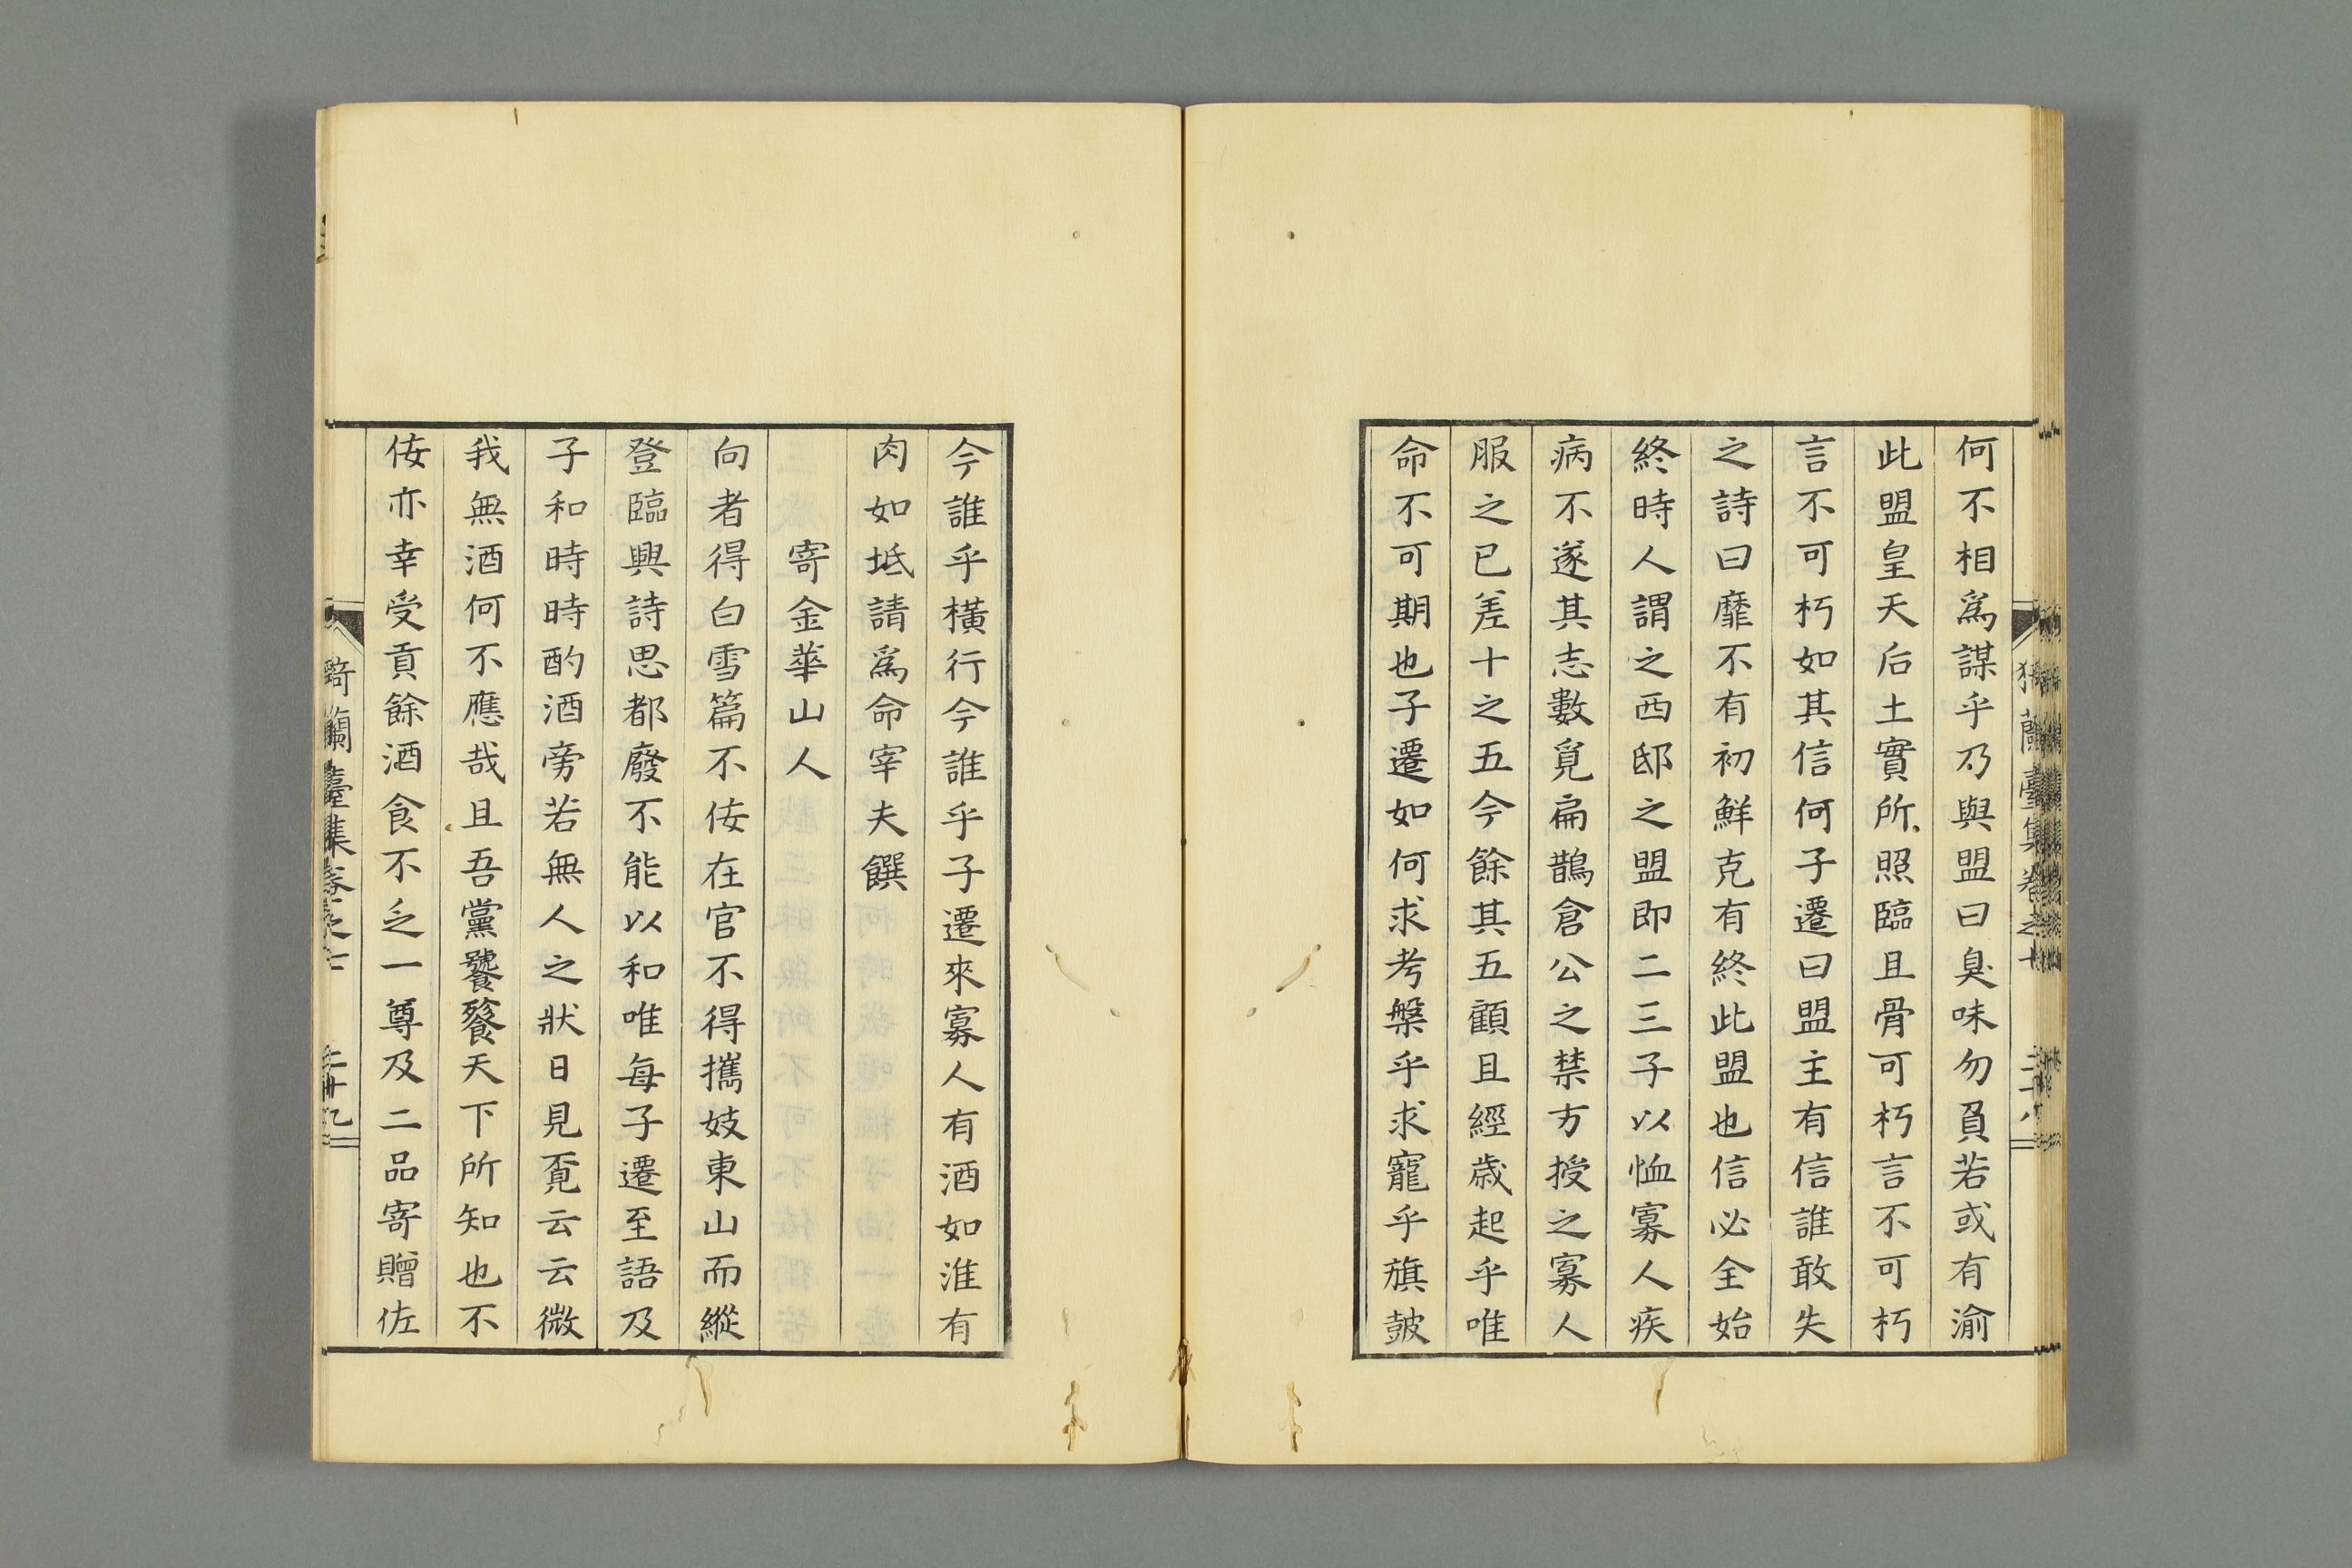 何不相爲謀乎乃與盟曰臭味勿負若或有渝
此盟皇天后土實所照臨且骨可朽言不可朽
言不可朽如其信何子遷曰盟主有信誰敢失
之詩曰靡不有初鮮克有終此盟也信必全始
終時人謂之西邸之盟即二三子以恤寡人疾
病不遂其志數覓扁鵲倉公之禁方授之寡人
服之已差十之五今餘其五顧且經歳起乎唯
命不可期也子遷如何求考槃乎求寵乎旗皷
今誰乎橫行今誰乎子遷來寡人有酒如淮有
肉如坻請爲命宰夫饌
寄金華山人
向者得白雪篇不佞在官不得攜妓東山而縱
登臨興詩思都廢不能以和唯每子遷至語及
子和時時酌酒旁若無人之狀日見覔云云微
我無酒何不應哉且吾黨饕餮天下所知也不
佞亦幸受貢餘酒食不乏一尊及二品寄贈佐
蘭臺集卷之